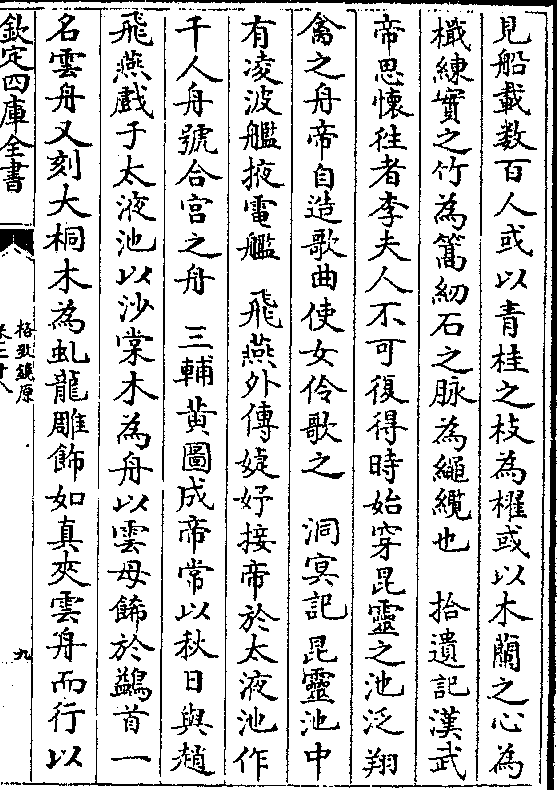 見船載数百人或以青桂之枝為櫂或以木蘭之心為
檝練實之竹為篙紉石之脉為繩纜也　拾遺記漢武
帝思懷徃者李夫人不可復得時始穿昆靈之池泛翔
禽之舟帝自造歌曲使女伶歌之　洞冥記昆靈池中
有凌波艦掖電艦　飛燕外傳婕妤接帝於太液池作
千人舟號合宮之舟　三輔黄圖成帝常以秋日與趙
飛燕戲于太液池以沙棠木為舟以雲母飾於鷁首一
名雲舟又刻大桐木為虬龍雕飾如真夾雲舟而行以
欽定四庫全書
格致鏡原
卷二十八
九